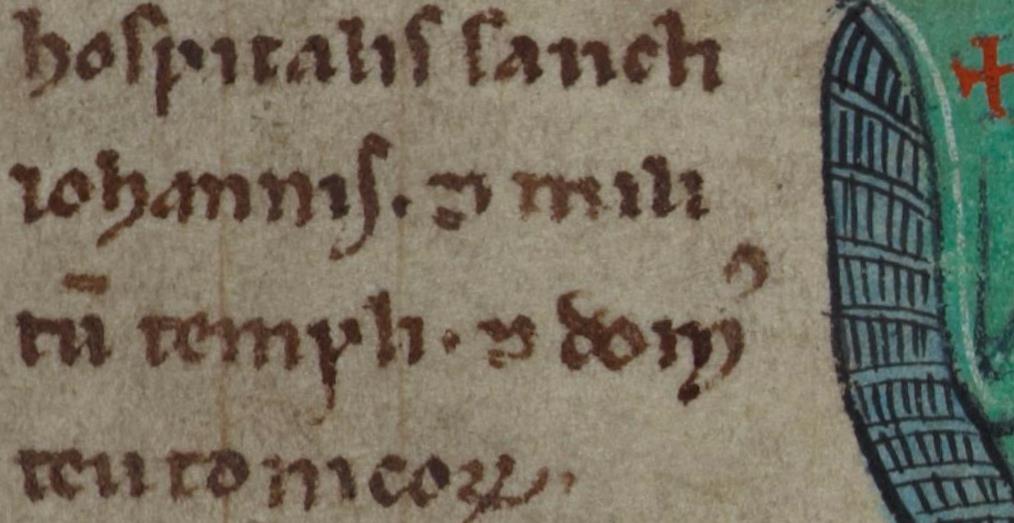 hospitalis sancti
iohannis. ⁊ mili
tū templi. ⁊ domꝰ
teutonicoꝝ.